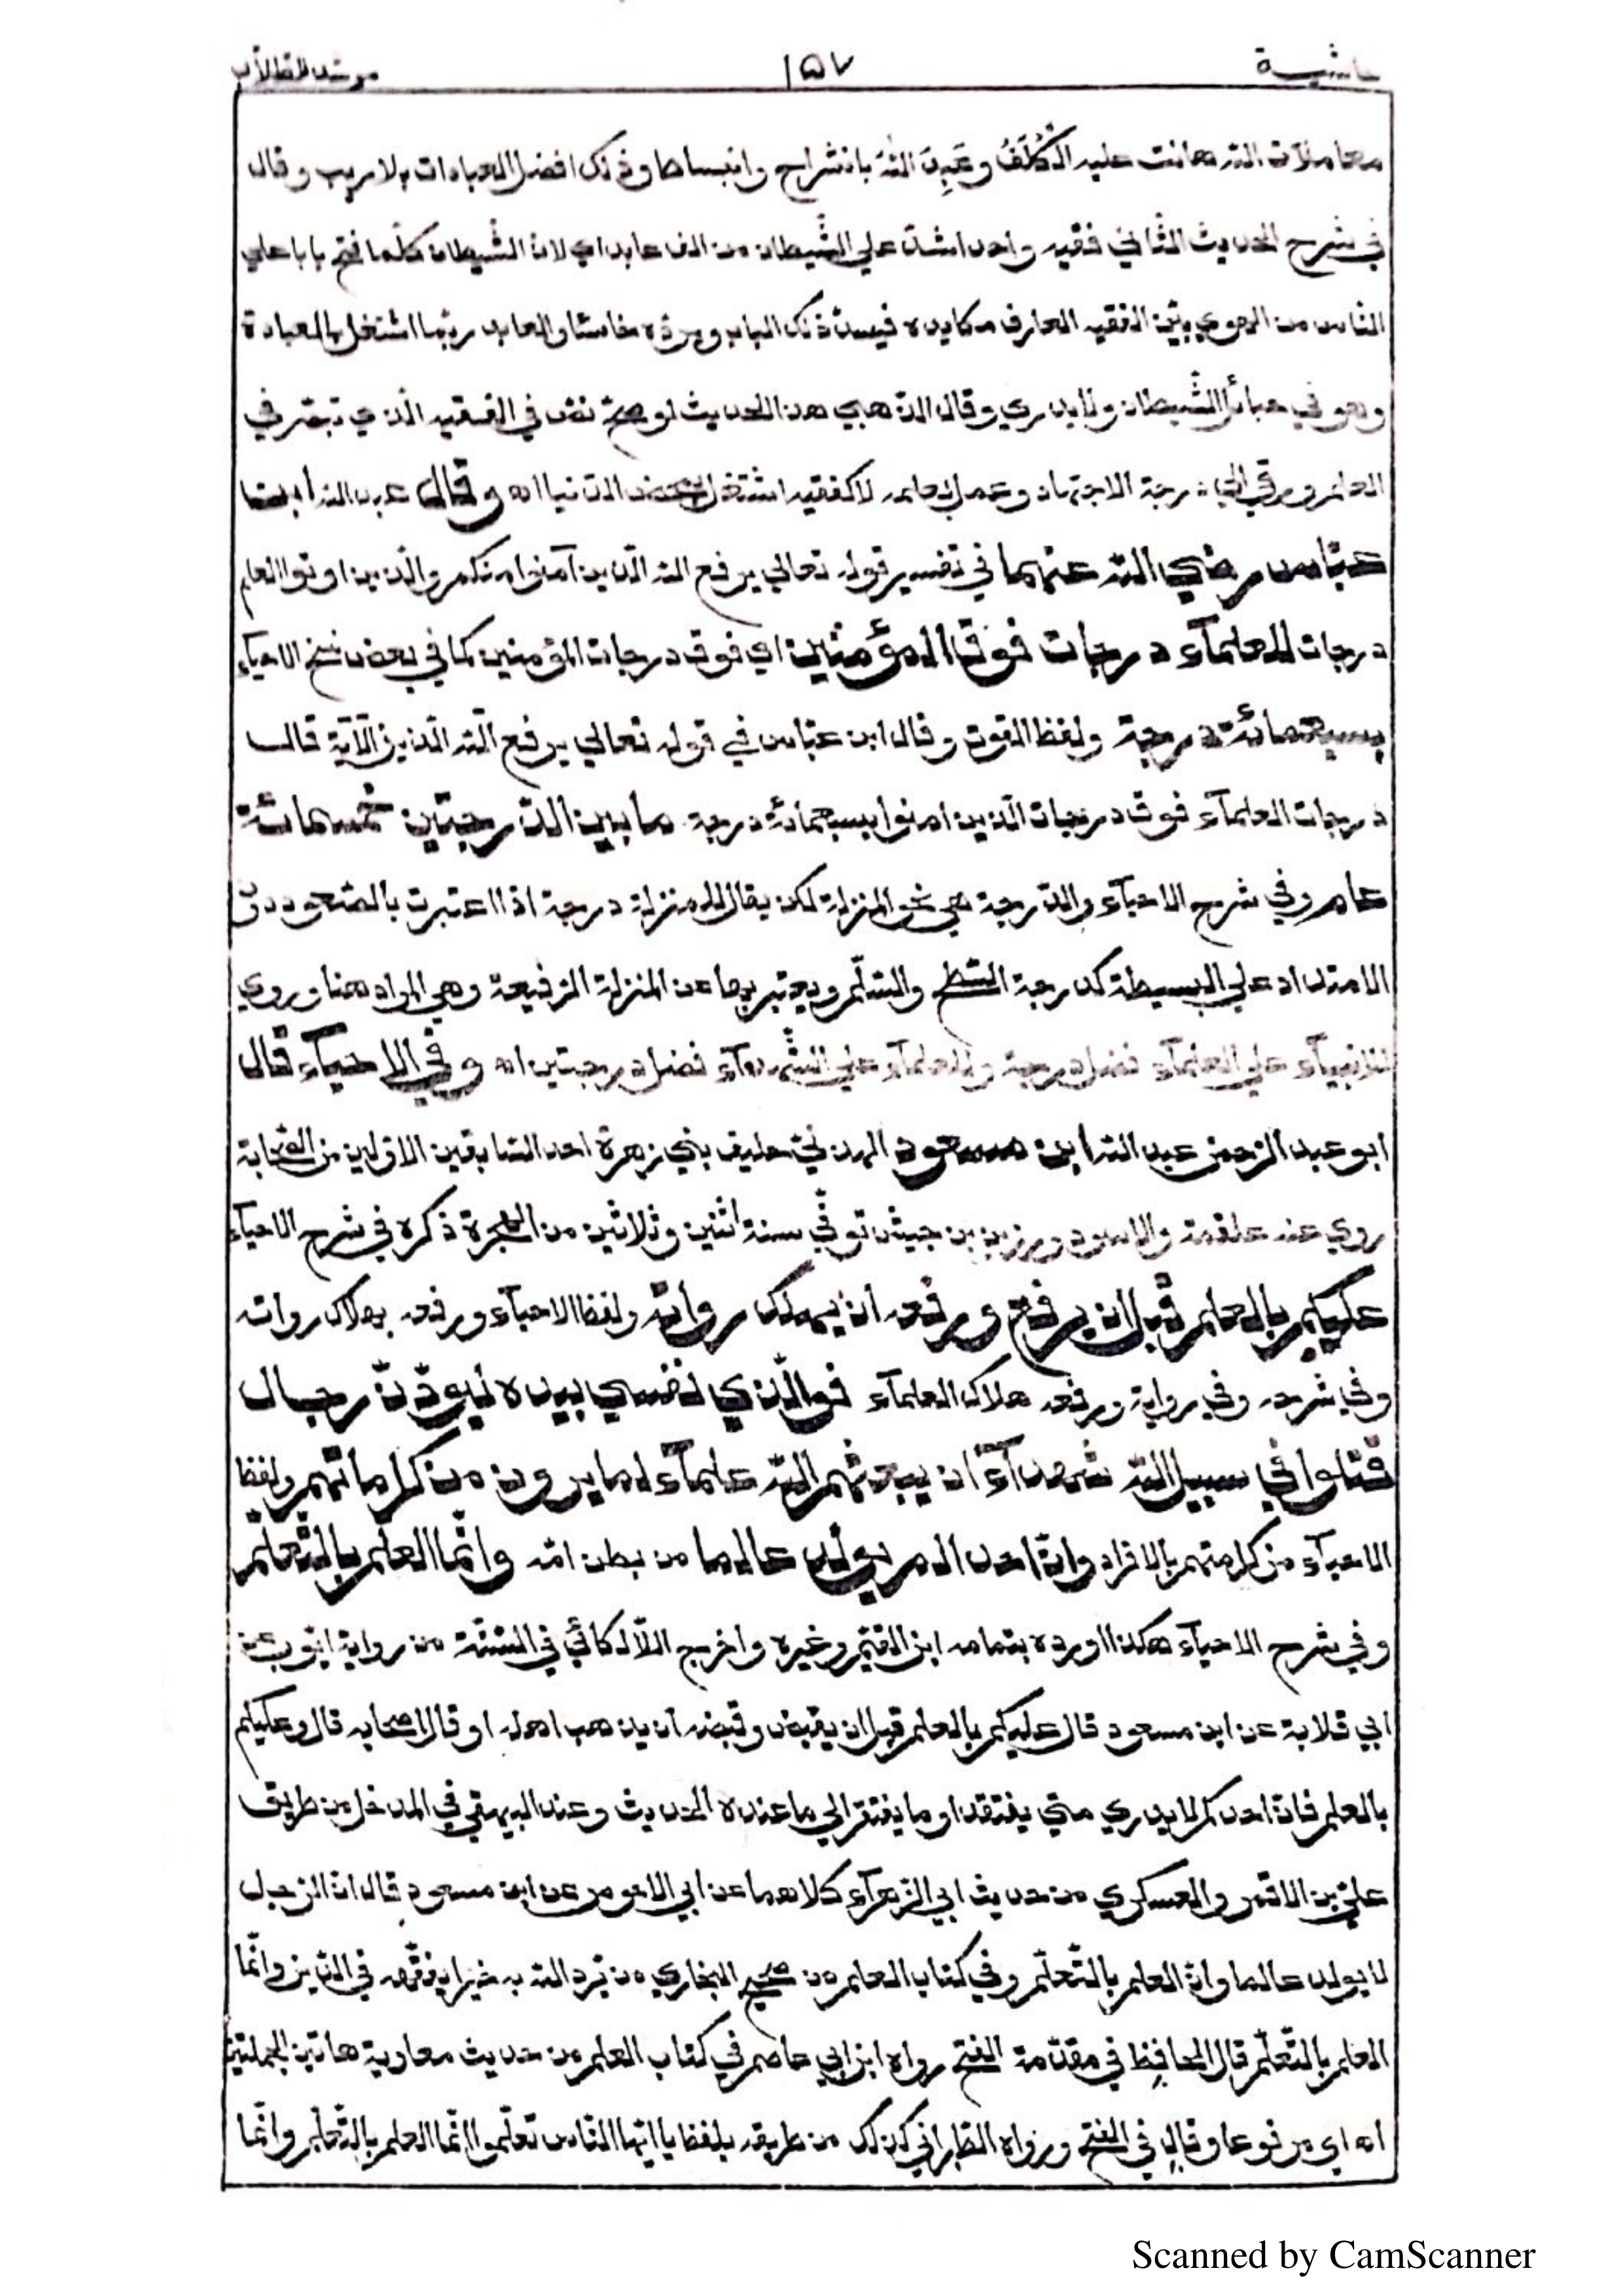 حاشية ١٥٧ مرشد الطلاب
معاملات الله هانت عليه الكُلَفُ وعَبِدَ اللهَ بانشراح وانبساط وذلك افضل العبادات بلا ريب وقال
في شرح الحديث الثاني فقيه واحد اشدّ علي الشّيطان من الف عابد اي لانّ الشّيطان كلّما فتح بابا علي
الناس من الهوي بيّن الفقيه العارف مكايده فيسدّ ذلك الباب ويردّه خاسئا والعابد ربّما اشتغل بالعبادة
وهو في حبائل الشّيطان ولا يدري وقال الذهبي هذا الحديث لو صحّ نصّ في الفقيه الّذي تبصّر في
العلم ورقي الي درجة الاجتهاد وعمل بعلمه لا كفقيه اشتغل بمحض الدّنيا اه وقال عبد الله ابن
عبّاس رضي الله عنهما في تفسير قوله تعالي يرفع الله الّذين آمنوا منكم والّذين اوتوا العلم
درجات للعلمآء درجات فوق المؤمنين اي فوق درجات المؤمنين كما في بعض نسخ الاحيآء
بسبعمائة درجة ولفظ القوت وقال ابن عبّاس في قوله تعالي يرفع الله الّذين الآية قال
درجات العلمآء فوق درجات الّذين امنوا بسبعمائة درجة ما بين الدّرجتين خمسمائة
عام وفي شرح الاحيآء والدّرجة هي نحو المنزلة لكن يقال للمنزلة درجة اذا اعتبرت بالصّعود دون
الامتداد علي البسيطة كدرجة السّطح والسّلّم ويعتبر بها عن المنزلة الرّفيعة وهي المراد هنا وروي
للانبيآء علي العلمآء فضل درجة وللعلمآء علي الشّهدآء فضل درجتين اه وفي الاحيآء قال
ابو عبد الرّحمن عبد الله ابن مسعود الهذليّ حليف بني زهرة احد السّابقين الاوّلين من الصّحابة
روي عنه علقمة والاسود وزرّ بن حبيش توفّي سنة اثنين وثلاثين من الهجرة ذكره في شرح الاحيآء
عليكم بالعلم قبل ان يرفع ورفعه ان يهلك رواته ولفظ الاحيآء ورفعه بهلاك رواته
وفي شرحه وفي رواية ورفعه هلاك العلمآء فوالّذي نفسي بيده ليودّنّ رجال
قتلوا في سبيل الله شهدآء ان يبعثهم الله علمآء لما يرون من كراماتهم ولفظ
الاحيآء من كرامتهم بالافراد وانّ احدا لم يولد عالما من بطن امّه وانّما العلم بالتّعلّم
وفي شرح الاحيآء هكذا اورده بتمامه ابن القيّم وغيره واخرج اللّالكائيّ في السّنّة من رواية ايّوب عن
ابي قلابة عن ابن مسعود قال عليكم بالعلم قبل ان يقبض وقبضه ان يذهب اهله او قال اصحابه قال وعليكم
بالعلم فانّ احدكم لا يدري متي يفتقد او ما يفتقر الي ما عنده الحديث وعند البيهقي في المدخل من طريق
عليّ بن الاقمر والعسكري من حديث ابي الزّعرآء كلاهما عن ابي الاحوص عن ابن مسعود قال انّ الرّجل
لا يولد عالما وانّ العلم بالتّعلّم وفي كتاب العلم من صحيح البخاري من يّرد الله به خيرا يفقّهه في الدّين وانّما
العلم بالتّعلّم قال الحافظ في مقدّمة الفتح رواه ابن ابي عاصم في كتاب العلم من حديث معاوية هاتين الجملتين
اه اي مرفوعا وقال في الفتح ورواه الطّبراني كذلك من طريقه بلفظ يا ايّها النّاس تعلّموا انّما العلم بالتّعلّم وانّما
Scanned by CamScanner